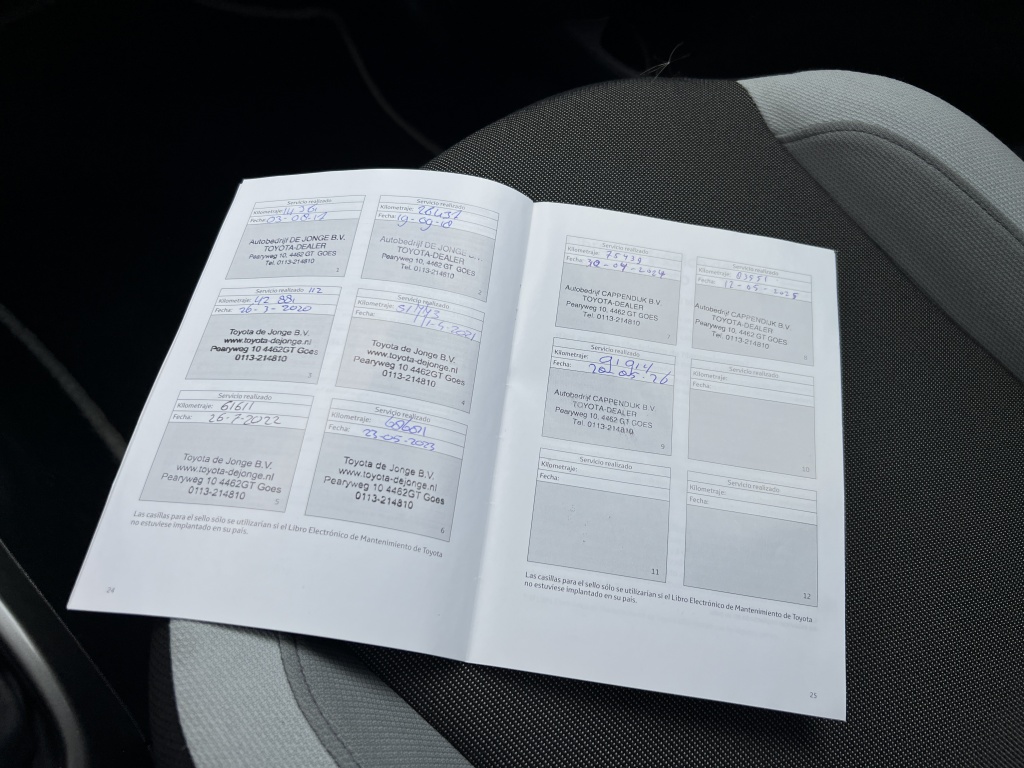 Servicio realizado
Kilometraje:
Fecha: 03-08-17
Autobedrijf DE JONGE B.V.
TOYOTA-DEALER
Pearyweg 10, 4462 GT GOES
Tel. 0113-214810
1
Servicio realizado
Kilometraje: 28431
Fecha: 19-09-18
Autobedrijf DE JONGE
TOYOTA-DEALER
Pearyweg 10, 4462 GT GOES
Tel. 0113-214810
2
Servicio realizado
Kilometraje: 42 881
Fecha: 26-3-2020
Toyota de Jonge B.V.
www.toyota-dejonge.nl
Pearyweg 10 4462GT Goes
0113-214810
3
Servicio realizado
Kilometraje:
Fecha:
Toyota de Jonge B.V.
www.toyota-dejonge.nl
Pearyweg 10 4462GT Goes
0113-214810
4
Servicio realizado
Kilometraje: 61611
Fecha: 26-7-2022
Toyota de Jonge B.V.
www.toyota-dejonge.nl
Pearyweg 10 4462GT Goes
0113-214810
5
Servicio realizado
Kilometraje:
Fecha: 23-05-2023
Toyota de Jonge B.V.
www.toyota-dejonge.nl
Pearyweg 10 4462GT Goes
0113-214810
6
Las casillas para el sello sólo se utilizarían si el Libro Electrónico de Mantenimiento de Toyota
no estuviese implantado en su país.
24
Servicio realizado
Kilometraje: 75439
Fecha:
Autobedrijf CAPPENDIJK B.V.
TOYOTA-DEALER
Pearyweg 10, 4462 GT GOES
Tel. 0113-214810
7
Servicio realizado
Kilometraje: 83551
Fecha: 12-05-2025
Autobedrijf CAPPENDIJK B.V.
TOYOTA-DEALER
Pearyweg 10, 4462 GT GOES
Tel. 0113-214810
8
Servicio realizado
Kilometraje: 91914
Fecha: 20-05-26
Autobedrijf CAPPENDIJK B.V.
TOYOTA-DEALER
Pearyweg 10, 4462 GT GOES
Tel. 0113-214810
9
Servicio realizado
Kilometraje:
Fecha:
10
Servicio realizado
Kilometraje:
Fecha:
11
Servicio realizado
Kilometraje:
Fecha:
12
Las casillas para el sello sólo se utilizarían si el Libro Electrónico de Mantenimiento de Toyota
no estuviese implantado en su país.
25